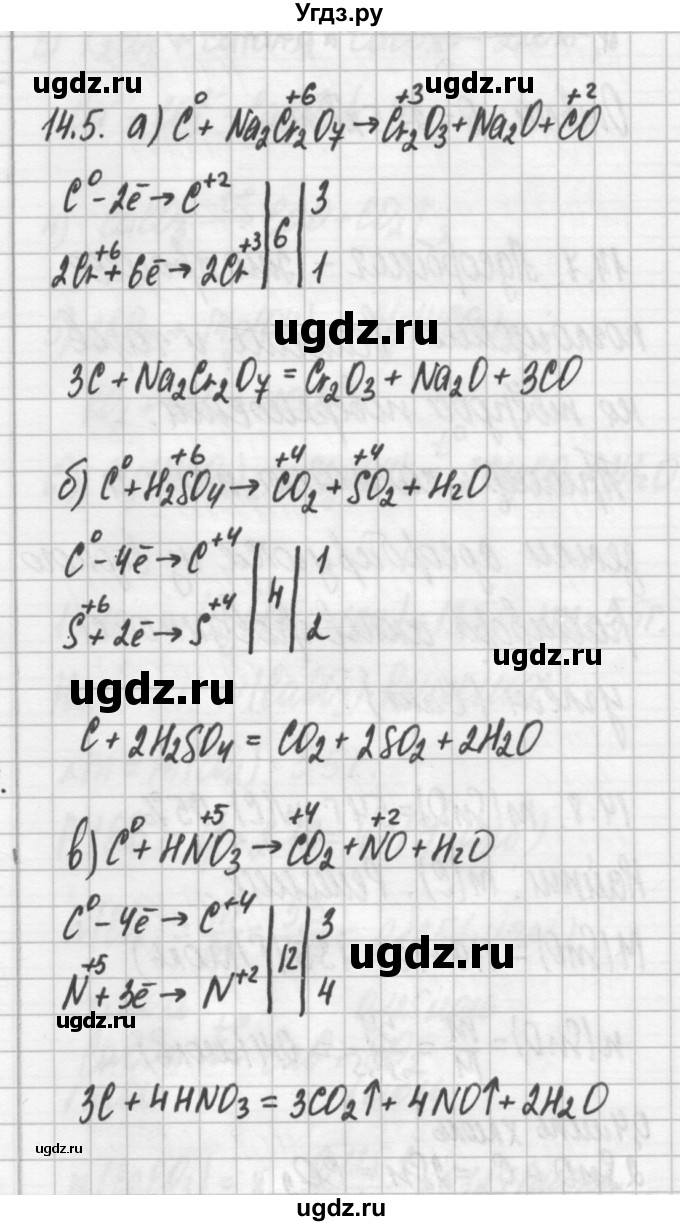 Угдз.ру
ugdz.ru ugdz.ru
14.5. а) C⁰ + Na₂Cr₂⁺⁶O₇ → Cr₂⁺³O₃ + Na₂O + C⁺²O
C⁰ - 2ē → C⁺² | 6 | 3
2Cr⁺⁶ + 6ē → 2Cr⁺³ | 1
ugdz.ru
3C + Na₂Cr₂O₇ = Cr₂O₃ + Na₂O + 3CO
б) C⁰ + H₂S⁺⁶O₄ → C⁺⁴O₂ + S⁺⁴O₂ + H₂O
C⁰ - 4ē → C⁺⁴ | 4 | 1
S⁺⁶ + 2ē → S⁺⁴ | 2
ugdz.ru
ugdz.ru
C + 2H₂SO₄ = CO₂ + 2SO₂ + 2H₂O
в) C⁰ + HN⁺⁵O₃ → C⁺⁴O₂ + N⁺²O + H₂O
C⁰ - 4ē → C⁺⁴ | 12 | 3
ugdz.ru
N⁺⁵ + 3ē → N⁺² | 4
ugdz.ru
3C + 4HNO₃ = 3CO₂↑ + 4NO↑ + 2H₂O
ugdz.ru
ugdz.ru